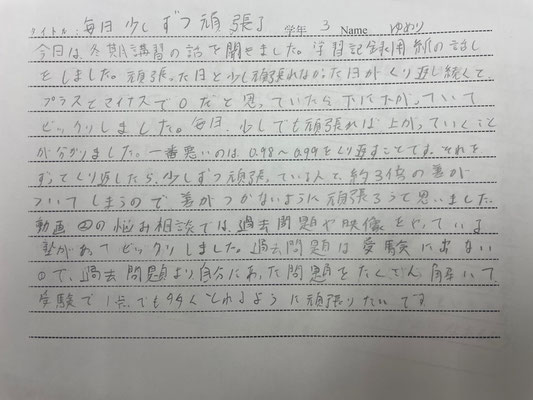 タイトル: 毎日少しずつ頑張る 学年 3 Name ゆめり
今日は冬期講習の話を聞きました。学習記録用紙の話し
をしました。頑張った日と少し頑張れなかった日がくり返し続くと
プラスとマイナスで0だと思っていたら下に下がっていて
ビックリしました。毎日少しでも頑張れば上がっていくこと
が分かりました。一番悪いのは0.98〜0.99をくり返すことです。それを
ずっとくり返したら、少しずつ頑張っている人と約3倍の差が
ついてしまうので差がつかないように頑張ろうと思いました。
動画の悩み相談では、過去問題や映像をやっている
塾があってビックリしました。過去問題は受験に出ない
ので、過去問題より自分にあった問題をたくさん解いて
受験で1点でも多くとれるように頑張りたいです